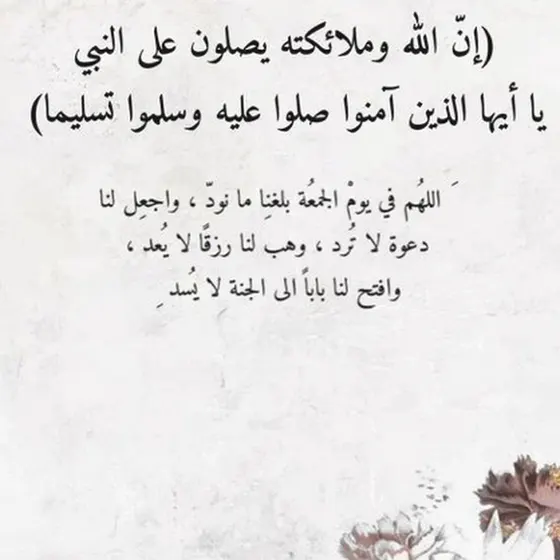 (إنّ الله وملائكته يصلون على النبي
يا أيها الذين آمنوا صلوا عليه وسلموا تسليما)
اللهُم في يومْ الجمعُة بلغنِا ما نودّ ، واجعِل لنا
دعوة لا تُرد ، وهب لنا رزقًا لا يُعد ،
وافتح لنا باباً الى الجنة لا يُسد